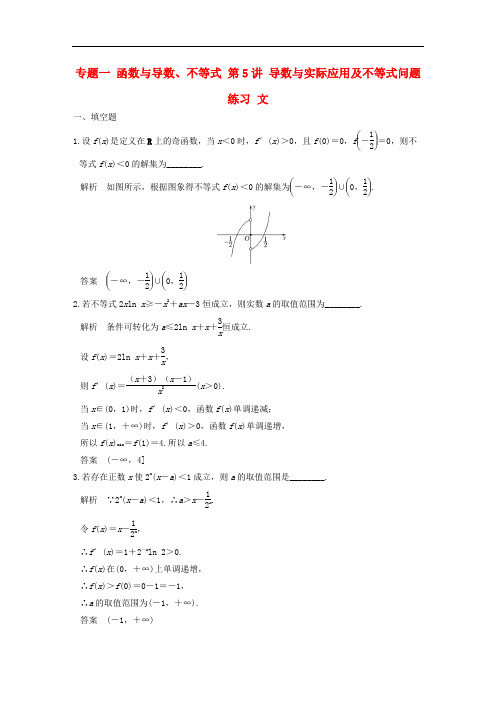 专题一 函数与导数、不等式 第5讲 导数与实际应用及不等式问题
练习 文
一、填空题
1.设f(x)是定义在R上的奇函数，当x＜0时，f′(x)＞0，且f(0)＝0，f(－1/2)＝0，则不
等式f(x)＜0的解集为________.
解析 如图所示，根据图象得不等式f(x)＜0的解集为(－∞，－1/2)∪(0，1/2).
y
－1/2 O 1/2 x
答案 (－∞，－1/2)∪(0，1/2)
2.若不等式2xln x≥－x²＋ax－3恒成立，则实数a的取值范围为________.
解析 条件可转化为a≤2ln x＋x＋3/x恒成立.
设f(x)＝2ln x＋x＋3/x，
则f′(x)＝（x＋3）（x－1）/x²(x＞0).
当x∈(0，1)时，f′(x)＜0，函数f(x)单调递减；
当x∈(1，＋∞)时，f′(x)＞0，函数f(x)单调递增，
所以f(x)min＝f(1)＝4.所以a≤4.
答案 (－∞，4]
3.若存在正数x使2ˣ(x－a)＜1成立，则a的取值范围是________.
解析 ∵2ˣ(x－a)＜1，∴a＞x－1/2ˣ.
令f(x)＝x－1/2ˣ，
∴f′(x)＝1＋2⁻ˣln 2＞0.
∴f(x)在(0，＋∞)上单调递增，
∴f(x)＞f(0)＝0－1＝－1，
∴a的取值范围为(－1，＋∞).
答案 (－1，＋∞)